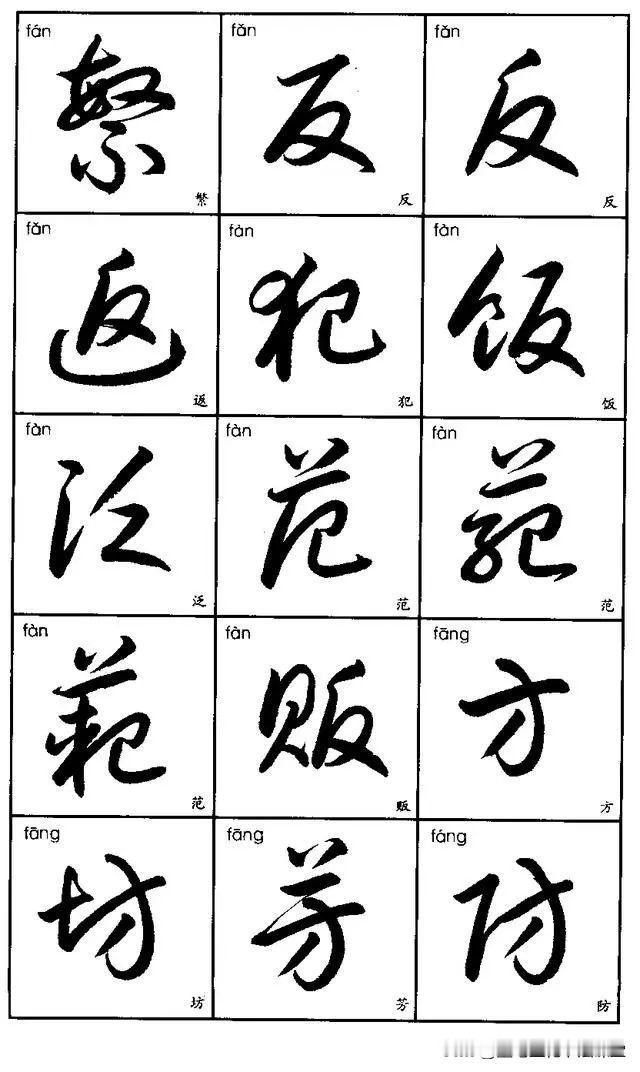 fán fǎn fǎn
繁 反 反
繁 反 反
fǎn fàn fàn
返 犯 饭
返 犯 饭
fàn fàn fàn
泛 范 范
泛 范 范
fàn fàn fāng
范 贩 方
范 贩 方
fāng fāng fáng
坊 芳 防
坊 芳 防